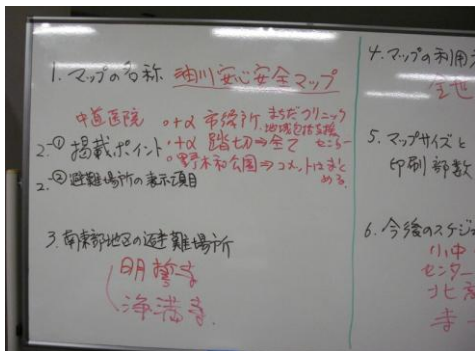 1. マップの名称 油川安心安全マップ
中道医院 ○+α 市役所、まちだクリニック
地域包括支援センター
2-① 掲載ポイント ○+α 踏切⇒全て
○野木和公園⇒コメントはまとめる。
2.② 避難場所の表示項目
3. 南東部地区の避難場所
明誓寺
浄満寺
4. マップの利用
全地
5. マップサイズと
印刷部数
6. 今後のスケジ
小中
センター
北